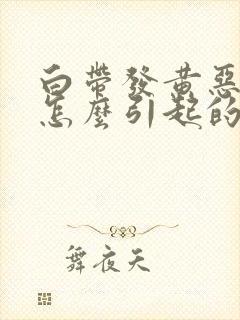 白帶發黃惡
怎麼引起的
舞夜天